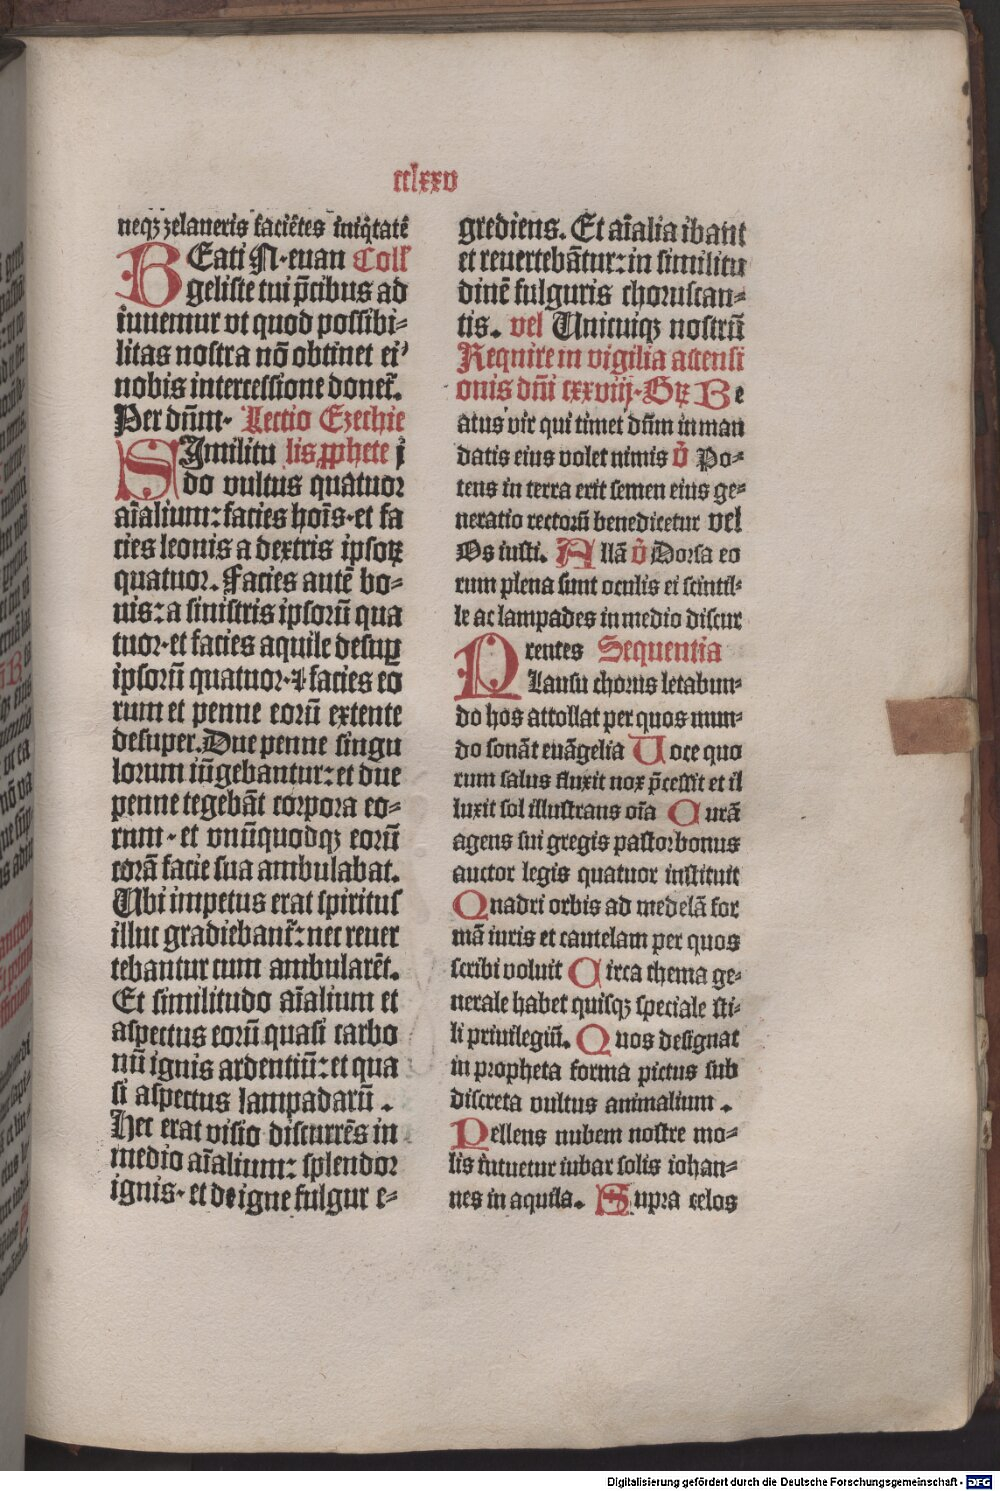 cclxxv
neqꝫ zelaueris faciētes iniq̇tatē
BEati N·euan Coll̓
geliste tui p̄cibus ad
iuuemur vt quod possibi⸗
litas nostra nō obtinet ei᾽
nobis intercessione donet᷑.
Per dn̄m· Lectio Ezechie
SImilitu lis ꝓphete j
do vultus quatuor
aīalium: facies hoīs·et fa
cies leonis a dextris ipsoꝝ
quatuor. Facies autē bo⸗
uis: a sinistris ipsorū qua
tuor·et facies aquile desuꝑ
ipsorū quatuor·⁊ facies eo
rum et penne eorū extente
desuper. Due penne singu
lorum iūgebantur: et due
penne tegebāt corpora eo⸗
rum· et vnūquodqꝫ eorū
corā facie sua ambulabat.
Ubi impetus erat spiritus
illuc gradiebant᷑: nec reuer
tebantur cum ambularēt.
Et similitudo aīalium et
aspectus eorū quasi carbo
nū ignis ardentiū: et qua
si aspectus lampadarū .
Hec erat visio discurrēs in
medio aīalium: splendor
ignis· et de igne fulgur e⸗
grediens. Et aīalia ibant
et reuertebātur: in similitu
dinē fulguris choruscan⸗
tis. vel Unicuiqꝫ nostrū
Require in vigilia ascensi
onis dn̄i cxxviij·Gꝝ Be
atus vir qui timet dn̄m in man
datis eius volet nimis v̊ Po⸗
tens in terra erit semen eius ge⸗
neratio rectorū benedicetur vel
Os iusti. Allā v̊ Dorsa eo
rum plena sunt oculis ei scintil⸗
le ac lampades in medio discur
rentes Sequentia
PLausu chorus letabun⸗
do hos attollat per quos mun⸗
do sonāt euāgelia Uoce quo
rum salus fluxit nox p̄cessit et il
luxit sol illustrans oīa Curā
agens sui gregis pastor bonus
auctor legis quatuor instituit
Quadri orbis ad medelā for
mā iuris et cautelam per quos
scribi voluit Circa thema ge⸗
nerale habet quisqꝫ speciale sti⸗
li priuilegiū. Quos designat
in propheta forma pictus sub
discreta vultus animalium .
Pellens nubem nostre mo⸗
lis intuetur iubar solis iohan⸗
nes in aquila. Supra celos
Digitalisierung gefördert durch die Deutsche Forschungsgemeinschaft - DFG